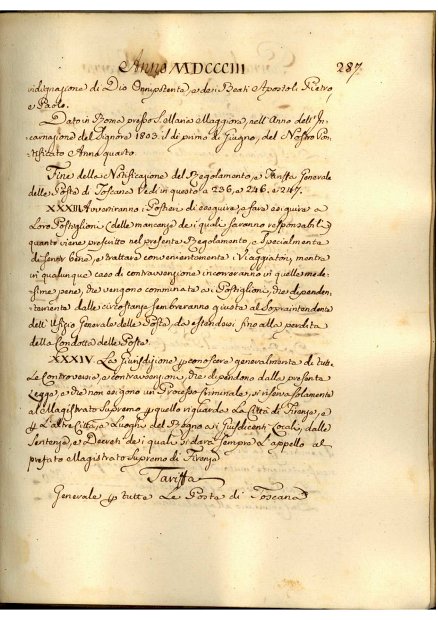 Anno MDCCCIII
287.
ndignazione di Dio Onnipotente, e dei Beati Apostoli Pietro,
e Paolo.
Dato in Roma presso S. Maria Maggiore, nell'Anno dell'In-
carnazione del Signore 1803. il dì primo di Giugno, del Nostro Pon-
tificato Anno quarto.
Fine della Notificazione del Regolamento, e Tariffa Generale
delle Poste di Toscana Vedi in questo a 236, e 246, e 247.
XXXIII. Avvertiranno i Postieri di eseguire, e fare eseguire a
Loro Postiglioni (delle mancanze dei quali saranno responsabili)
quanto viene prescritto nel presente Regolamento, e specialmente
di servir bene, e trattare convenientemente i Viaggiatori, mentre
in qualunque caso di contravvenzione incorreranno in quelle mede-
sime pene, che vengono comminate ai Postiglioni, che dipenden-
temente dalle circostanze sembreranno giuste al Soprintendente
dell'Ufizio Generale delle Poste, da estendersi fino alla perdita
della Condotta delle Poste.
XXXIV. La Giurisdizione p conoscere generalmente di tutte
Le Controversie, e contravvenzioni, che dipendono dalla presente
Legge, e che non esigono un Processo Criminale, si riserva solamente
al Magistrato Supremo p quello riguarda La Città di Firenze, e
p L'altre Città, e Luoghi del Regno ai Giusdicenti Locali, dalle
Sentenze, e Decreti dei quali si darà sempre L'appello al
prefato Magistrato Supremo di Firenze
Tariffa
Generale p tutte Le Poste di Toscana